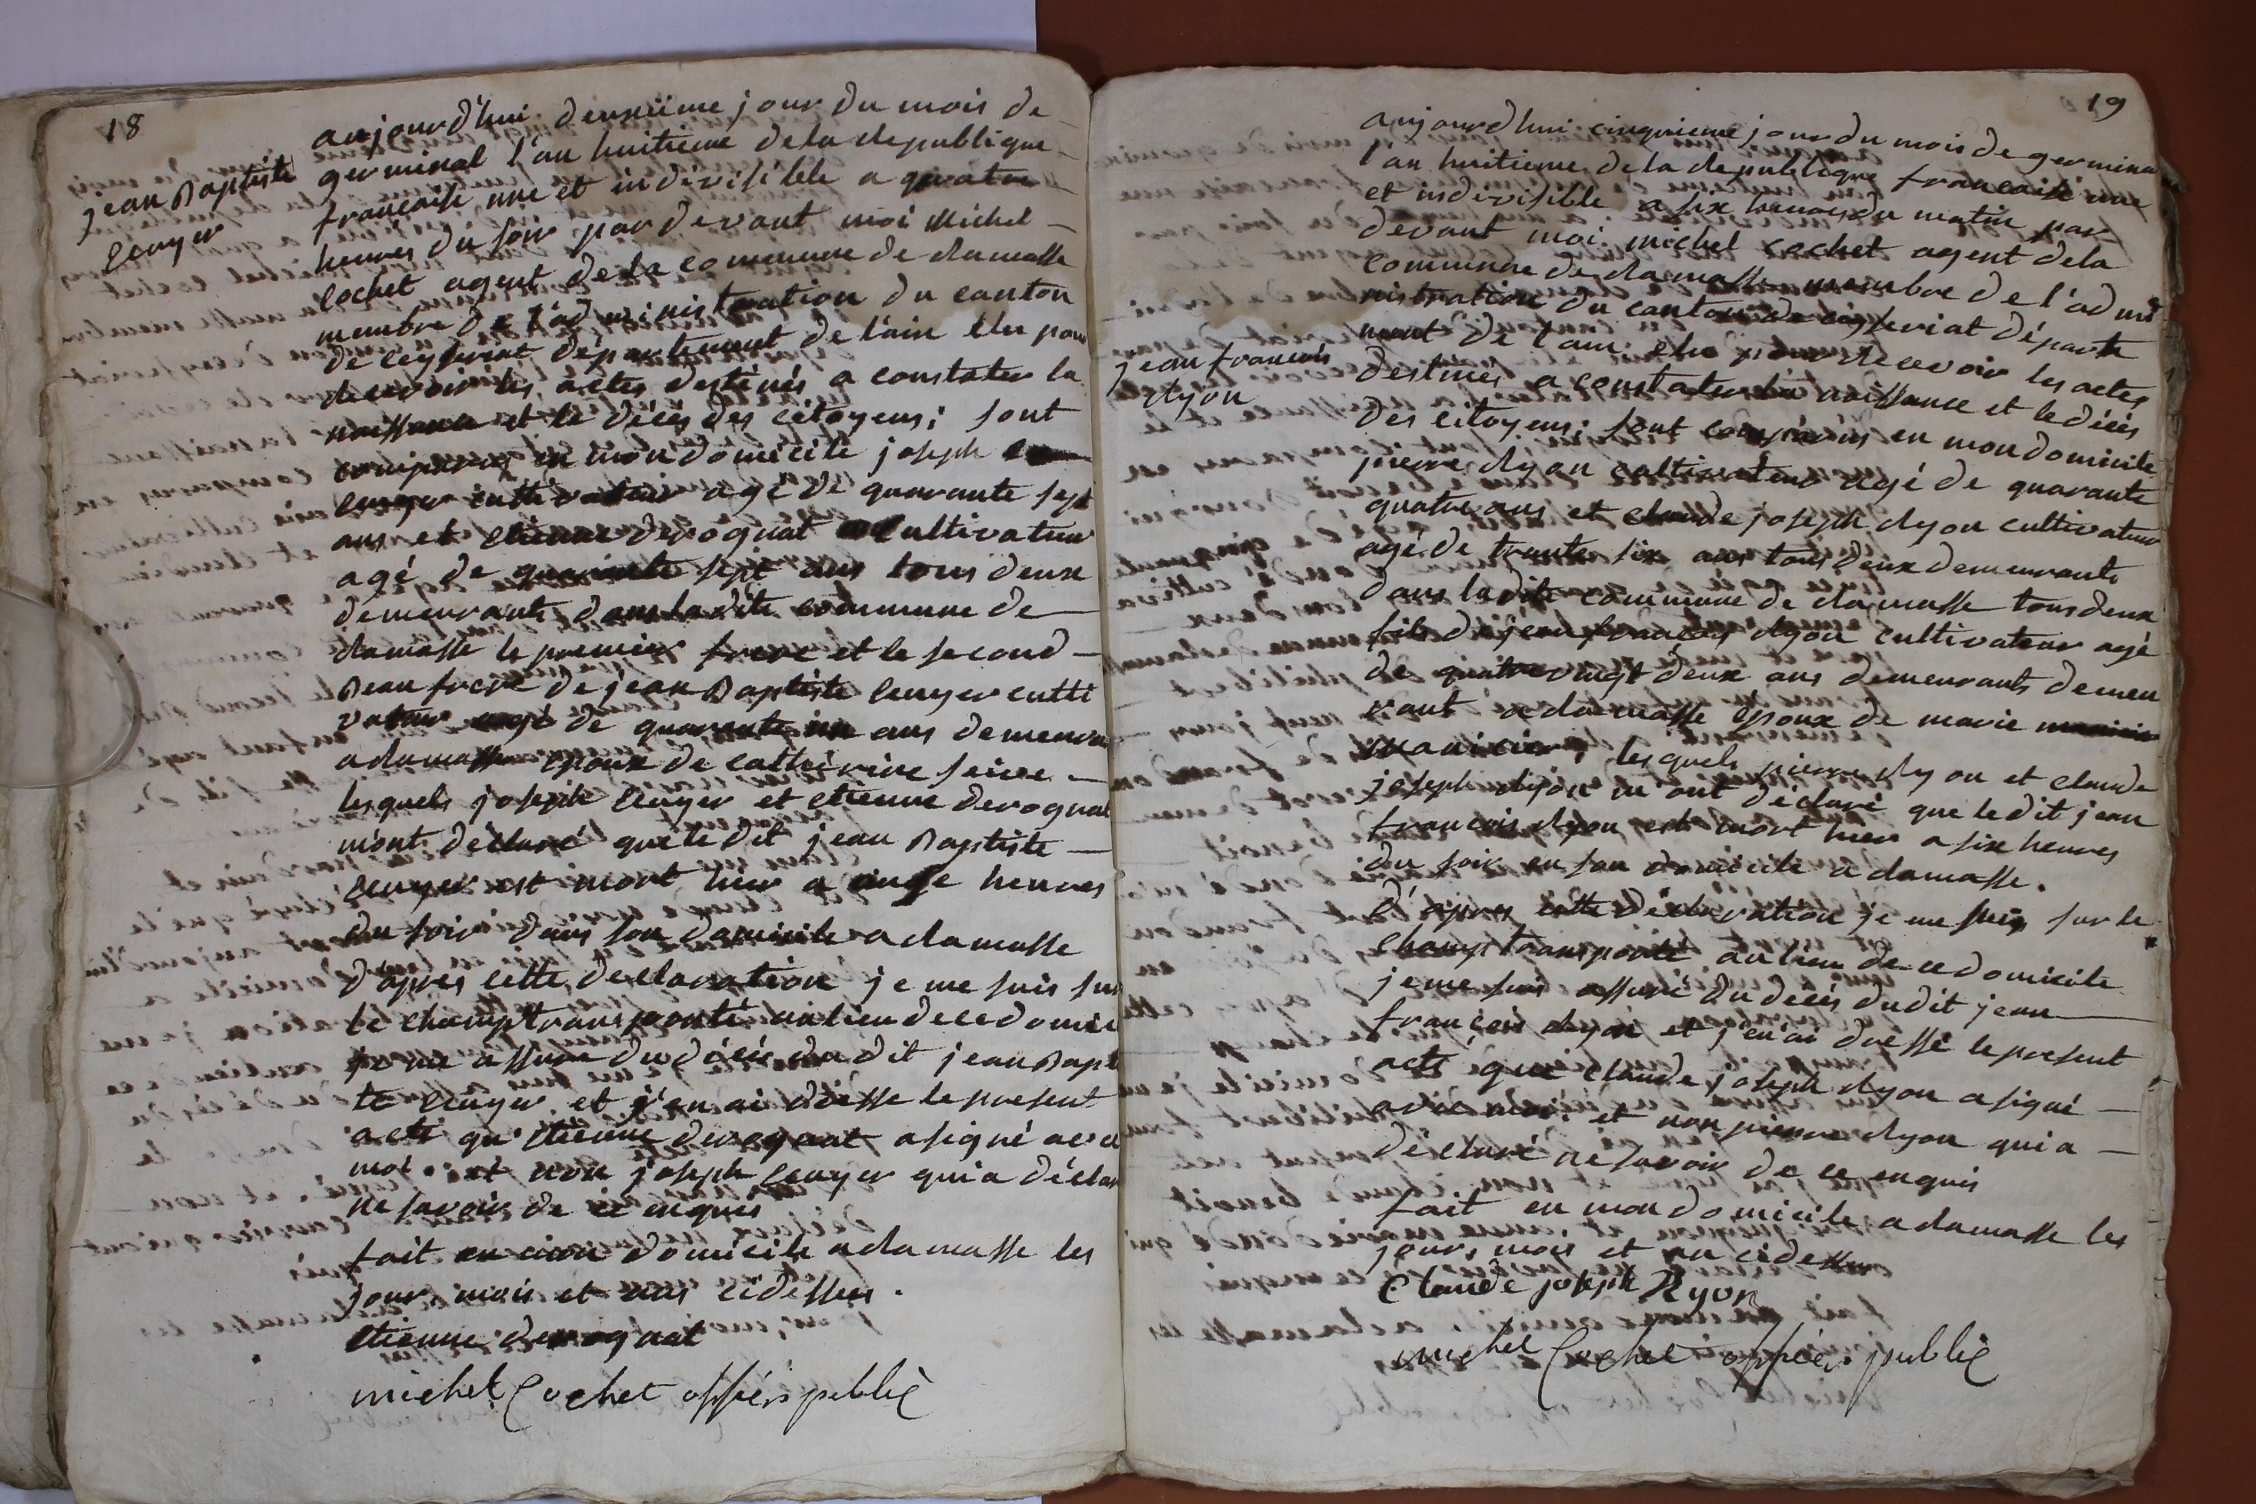 18
jean Baptiste
Cuyer
aujourd'hui deuxiieme jour du mois de
germinal l'an huitieme de la republique
francaise une et indivisible a quatre
heures du soir par devant moi Michel
Cochet agent de la commune de ramasse
membre de l'administration du canton
de ceyseriat département de l'ain élu pour
recevoir les actes destinés a constater la
naissance et le décès des citoyens; sont
comparus en mon domicile joseph
cuyer cultivateur agé de quarante sept
ans et etienne devoquat cultivateur
agé de quarante sept ans tous deux
demeurants dans la dite commune de
ramasse le premier frere et le second
Beaufrere de jean Baptiste cuyer culti
vateur agé de quarante un ans demeura
a ramasse epoux de catherine
lesquels joseph cuyer et etienne devoquat
m'ont déclaré que le dit jean Baptiste
cuyer est mort hier a onze heures
du soir dans son domicile a ramasse
d'apres cette declaration je me suis sur
le champ transporté au lieu de ce domici
je me assure du décés du dit jean Bapt
te cuyer et j'en ai dresse le present
acte qu'etienne devoquat a signé avec
moi et non joseph cuyer qui a déclar
ne savoir de ce enquis
fait en mon domicile a ramasse les
jour mois et ans cidessus.
etienne devoquat
michel Cochet offiér publiè
19
jean francois
ryon
aujourd'hui cinquieme jour du mois de germina
l'an huitieme de la republique francaise une
et indivisible a six heures du matin par
devant moi michel cochet agent de la
commune de ramasse membre de l'admi
nistration du canton de ceyseriat départe
ment de l'ain elu pour recevoir les actes
destinés a constater la naissance et le décès
des citoyens; sont comparus en mon domicile
pierre ryon cultivateur agé de quarante
quatre ans et claude joseph ryon cultivateur
agé de trente six ans tous deux demeurants
dans ladite commune de ramasse tous deux
fils de jean francois ryon cultivateur agé
de quatre vingt deux ans demeurants demeu
rant a ramasse epoux de marie
lesquels pierre ryon et claude
joseph ryon m'ont déclaré que ledit jean
francois ryon est mort hier a six heures
du soir en son domicile a ramasse.
d'apres cette déclaration je me suis sur le
champ transporté au lieu de ce domicile
je me suis assuré du decés dudit jean
francois ryon et j'en ai dressé le present
acte que claude joseph ryon a signé
avec moi et non pierre ryon qui a
déclaré ne savoir de ce enquis
fait en mon domicile a ramasse les
jours mois et an cidessus
Claude joseph Ryon
michel Cochet offiéer publiè